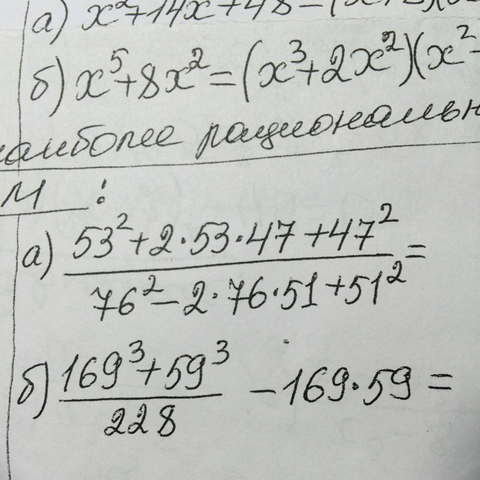 а) x²+14x+48=(x+
б) x⁵+8x²=(x³+2x²)(x²-
наиболее рациональн
м :
а) 53²+2·53·47+47² / 76²-2·76·51+51² =
б) 169³+59³ / 228 -169·59=